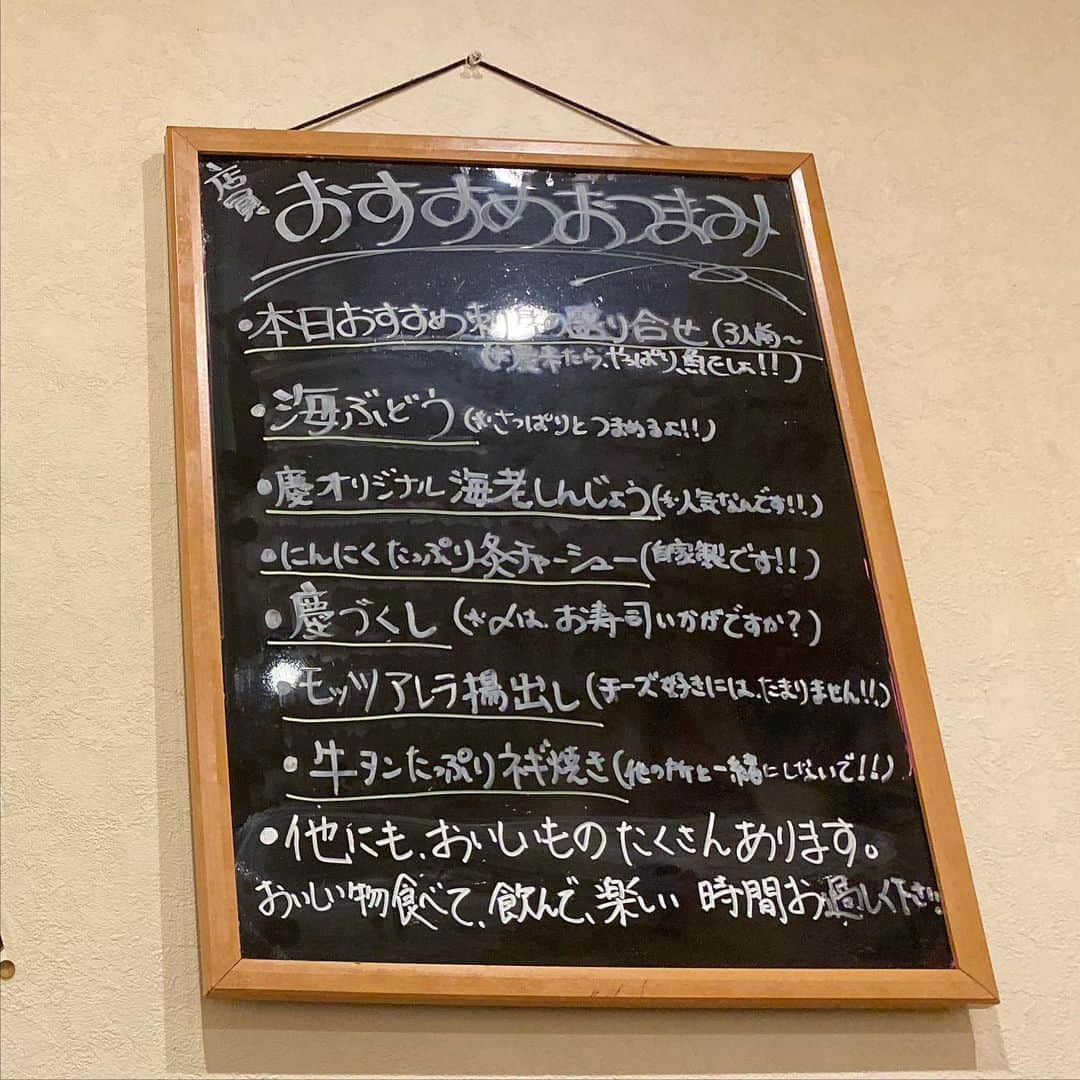 店員 おすすめおつまみ
・本日おすすめ刺身の盛り合せ(3人前〜
(※慶来たら、やっぱり、魚でしょ!!)
・海ぶどう(※さっぱりとつまめるよ!!)
・慶オリジナル海老しんじょう(※人気なんです!!)
・にんにくたっぷり灸チャーシュー(自家製です!!)
・慶づくし(※〆は、お寿司いかがですか?)
・モッツアレラ揚出し(チーズ好きには、たまりません!!)
・牛タンたっぷりネギ焼き(他の所と一緒にしないで!!)
・他にも、おいしいものたくさんあります。
おいしい物食べて、飲んで、楽しい時間お過しください!